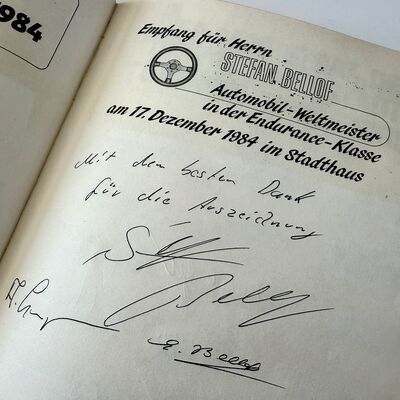 1984
Empfang für Herrn
STEFAN BELLOF
Automobil-Weltmeister
in der Endurance-Klasse
am 17. Dezember 1984 im Stadthaus
Mit dem besten Dank
für die Auszeichnung
Stefan Bellof